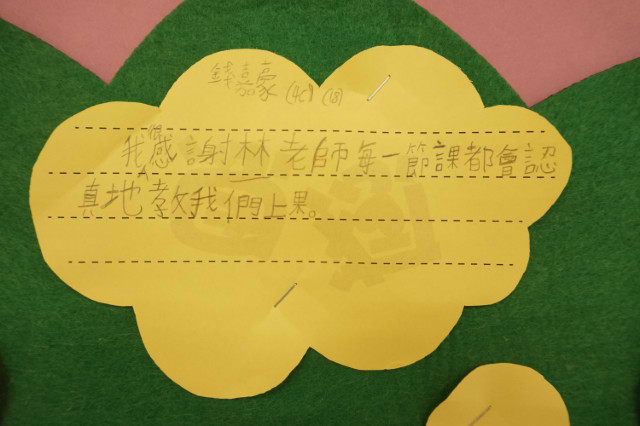 錢嘉豪 (4C) (3)
我很感謝林老師每一節課都會認
真地教我們上果。